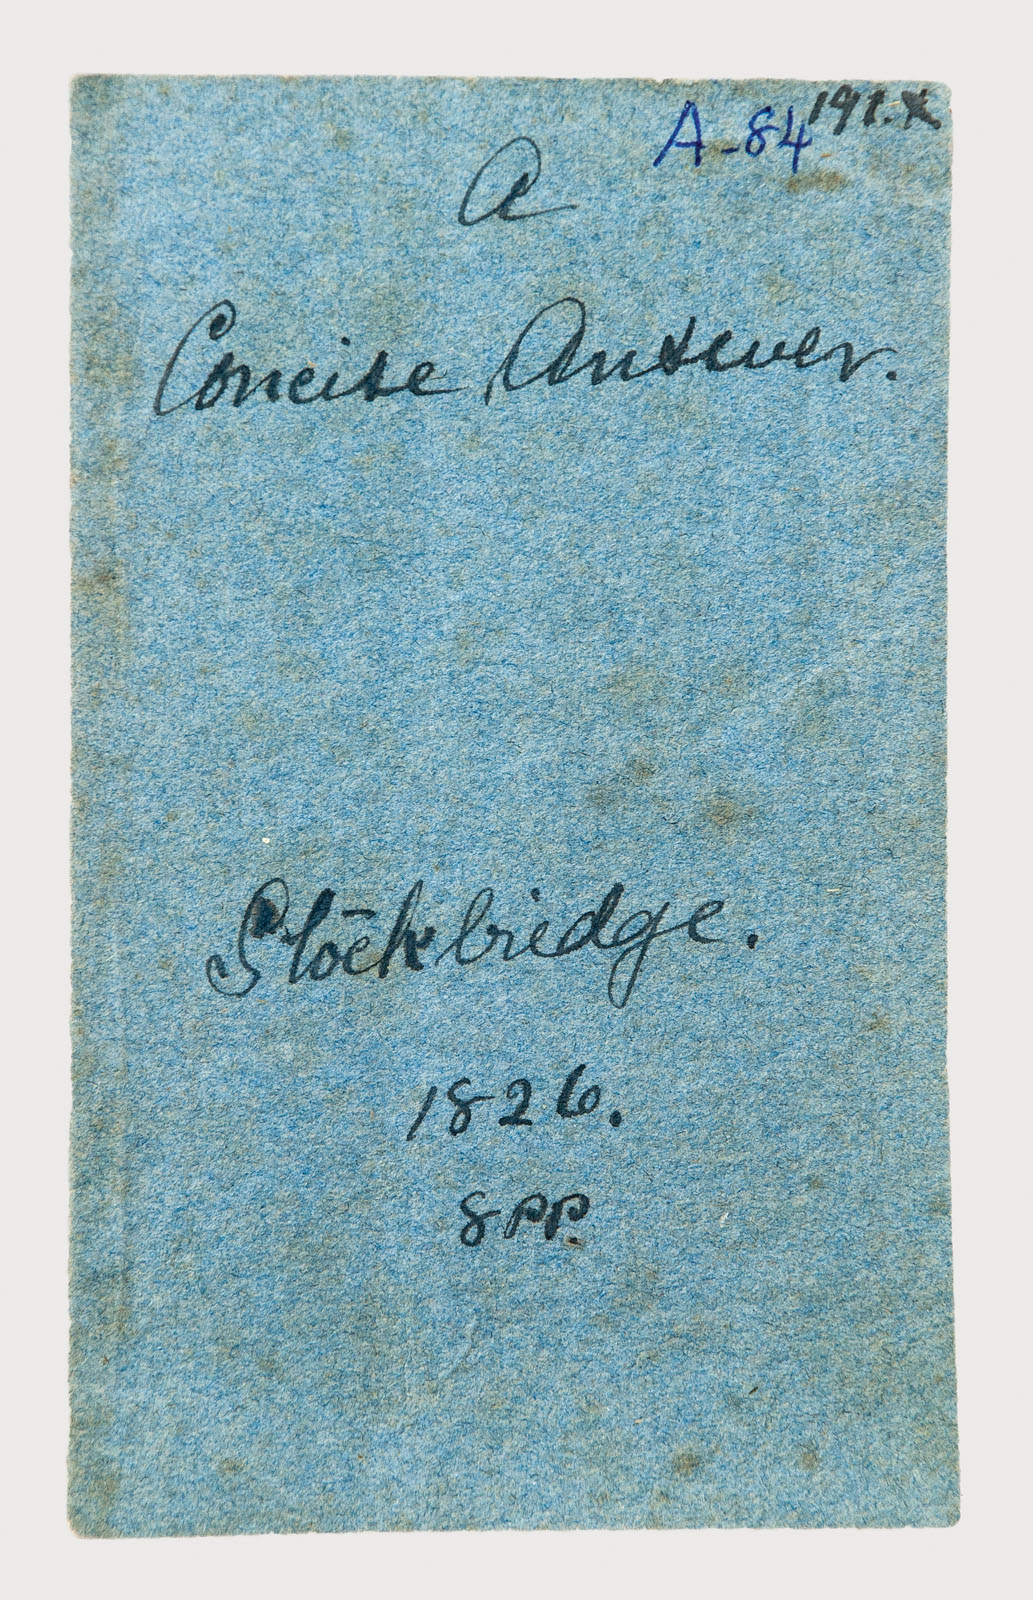 A-84 191.X
A
Concise Answer.
Stockbridge.
1826.
8 pp.